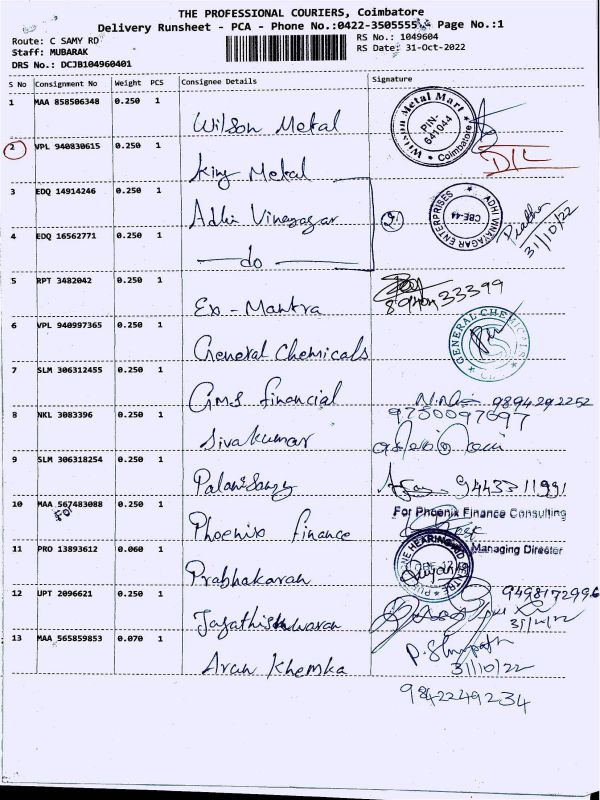 THE PROFESSIONAL COURIERS, Coimbatore
Delivery Runsheet - PCA - Phone No.:0422-3505555 Page No.:1
Route: C SAMY RD
RS No.: 1049604
Staff: MUBARAK
RS Date: 31-Oct-2022
DRS No.: DCJB104960401
S No Consignment No Weight PCS Consignee Details Signature
1 MAA 858506348 0.250 1 Wilson Metal
Wilson Metal Mart PIN-641044 Coimbatore
2 VPL 940830615 0.250 1 King Metal
3 EDQ 14914246 0.250 1 Adhi Vinayagar
ADHI VINAYAGAR ENTERPRISES CBE-44
31/10/22
4 EDQ 16562771 0.250 1 do
5 RPT 3482042 0.250 1 Ex-Mantra
6 VPL 940997365 0.250 1 General Chemicals
GENERAL CHEMICALS
7 SLM 306312455 0.250 1 GMS financial
9894292252
8 NKL 3083396 0.250 1 Sivakumar
9750097697
9 SLM 306318254 0.250 1 Palanisamy
9443311991
10 MAA 567483088 0.250 1 Phoenix finance
For
For Phoenix Finance Consulting
Managing Director
11 PRO 13893612 0.060 1 Prabhakaran
HEARING AID CENTRE
12 UPT 2096621 0.250 1
9498172996
31/10/22
13 MAA 565859853 0.070 1 Arun Khemka
31/10/22
9842249234